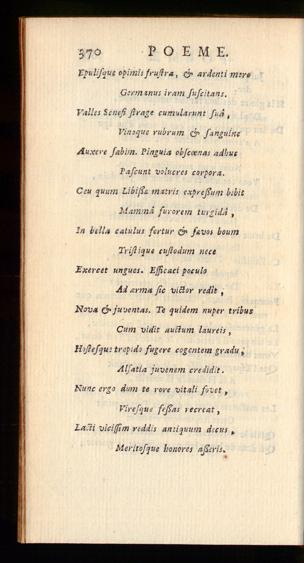 370 POEME.
Epulisque opimis frustra, & ardenti mero
Germanus iram suscitans.
Valles Senefi strage cumularunt suâ,
Vinoque rubrum & sanguine
Auxere sabim. Pinguia obscœnas adhuc
Pascunt volucres corpora.
Ceu quum Libissæ matris expressum bibit
Mammâ furorem turgidâ,
In bella catulus fertur & sævos boum
Tristique custodum nece
Exercet ungues. Efficaci poculo
Ad arma sic victor redit,
Nova & juventas. Te quidem nuper tribus
Cum vidit auctum laureis,
Hostesque trepido fugere cogentem gradu,
Alsatia juvenem credidit.
Nunc ergo dum te rore vitali fovet,
Viresque fessas recreat,
Læti vicissim reddis antiquum decus,
Meritosque honores asseris.